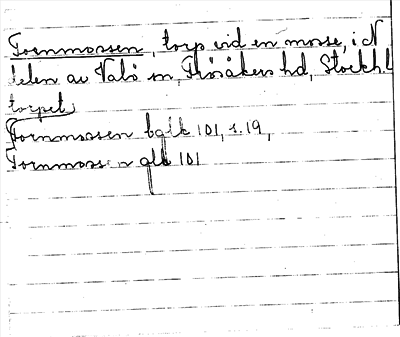 Tornmossen, torp vid en mosse, i N
delen av Valö sn, Frösåkers hd, Stockh.l
torpet
Tornmossen bglk 101, s. 19,
Tornmosse n glk 101